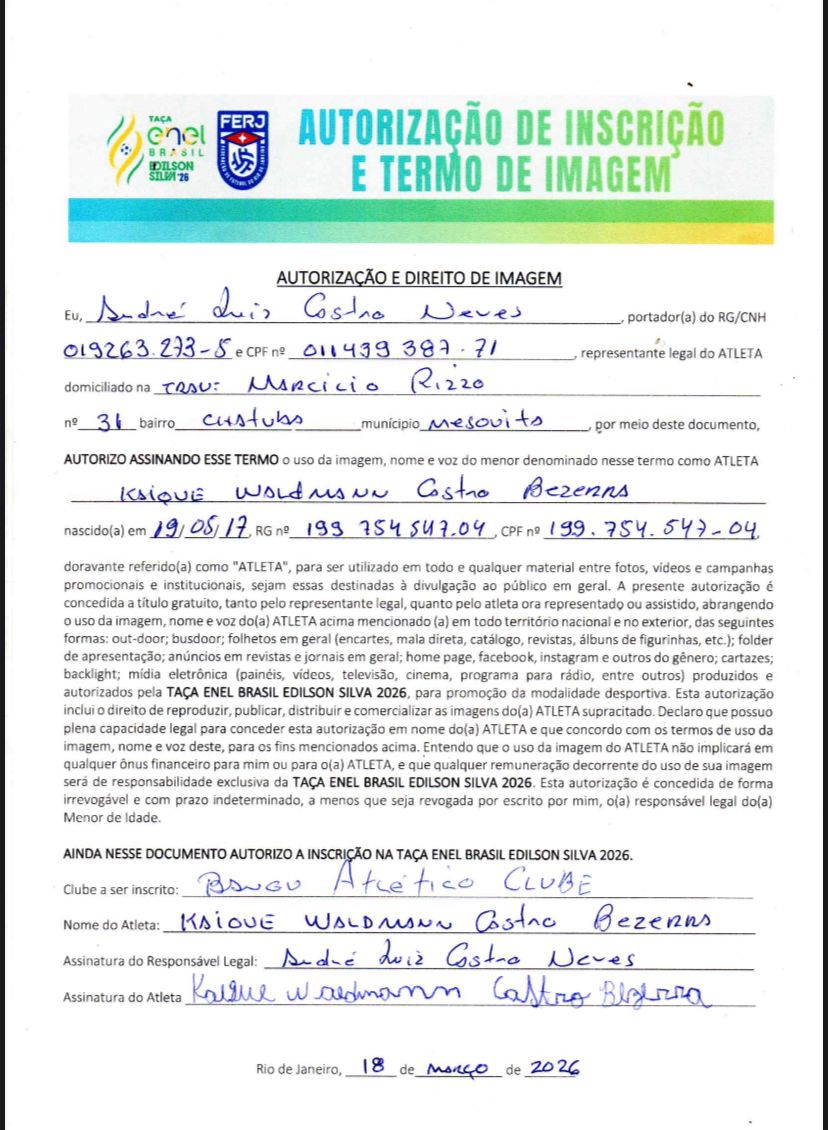 TAÇA
enel
BRASIL
EDILSON
SILVA '26
FERJ
AUTORIZAÇÃO DE INSCRIÇÃO
E TERMO DE IMAGEM
AUTORIZAÇÃO E DIREITO DE IMAGEM
Eu, André Luiz Castro Neves, portador(a) do RG/CNH
019263.273-5 e CPF nº 011439 387.71, representante legal do ATLETA
domiciliado na TRAV: Marcicio Rizzo
nº 31 bairro município Mesquita, por meio deste documento,
AUTORIZO ASSINANDO ESSE TERMO o uso da imagem, nome e voz do menor denominado nesse termo como ATLETA
Kaique Waldmann Castro Bezerra
nascido(a) em 19/05/17, RG nº 199 754 547.04, CPF nº 199.754.547-04,
doravante referido(a) como "ATLETA", para ser utilizado em todo e qualquer material entre fotos, vídeos e campanhas
promocionais e institucionais, sejam essas destinadas à divulgação ao público em geral. A presente autorização é
concedida a título gratuito, tanto pelo representante legal, quanto pelo atleta ora representado ou assistido, abrangendo
o uso da imagem, nome e voz do(a) ATLETA acima mencionado (a) em todo território nacional e no exterior, das seguintes
formas: out-door; busdoor; folhetos em geral (encartes, mala direta, catálogo, revistas, álbuns de figurinhas, etc.); folder
de apresentação; anúncios em revistas e jornais em geral; home page, facebook, instagram e outros do gênero; cartazes;
backlight; mídia eletrônica (painéis, vídeos, televisão, cinema, programa para rádio, entre outros) produzidos e
autorizados pela TAÇA ENEL BRASIL EDILSON SILVA 2026, para promoção da modalidade desportiva. Esta autorização
inclui o direito de reproduzir, publicar, distribuir e comercializar as imagens do(a) ATLETA supracitado. Declaro que possuo
plena capacidade legal para conceder esta autorização em nome do(a) ATLETA e que concordo com os termos de uso da
imagem, nome e voz deste, para os fins mencionados acima. Entendo que o uso da imagem do ATLETA não implicará em
qualquer ônus financeiro para mim ou para o(a) ATLETA, e que qualquer remuneração decorrente do uso de sua imagem
será de responsabilidade exclusiva da TAÇA ENEL BRASIL EDILSON SILVA 2026. Esta autorização é concedida de forma
irrevogável e com prazo indeterminado, a menos que seja revogada por escrito por mim, o(a) responsável legal do(a)
Menor de Idade.
AINDA NESSE DOCUMENTO AUTORIZO A INSCRIÇÃO NA TAÇA ENEL BRASIL EDILSON SILVA 2026.
Clube a ser inscrito: Bangu Atlético CLUBE
Nome do Atleta: Kaique Waldmann Castro Bezerra
Assinatura do Responsável Legal: André Luiz Castro Neves
Assinatura do Atleta Kaique Waldmann Castro Bezerra
Rio de Janeiro, 18 de março de 2026